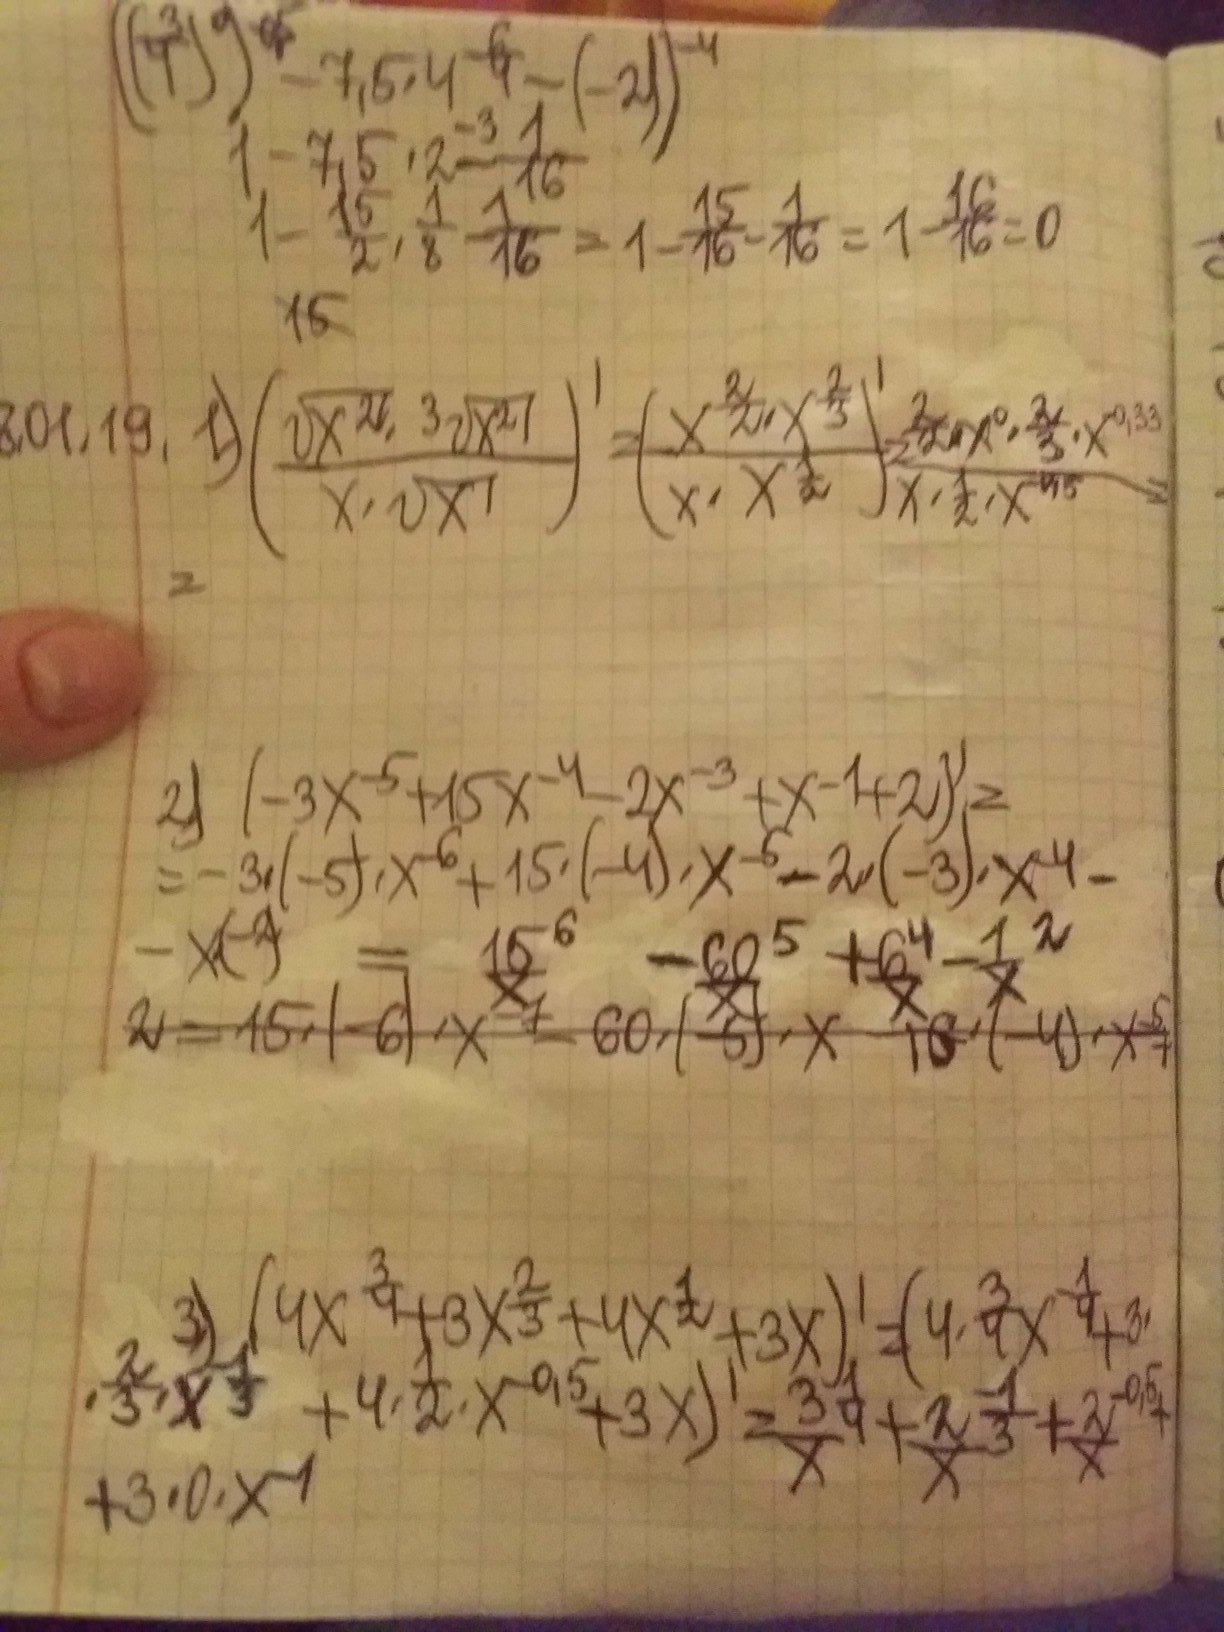 − 7,5·4 − (−2))⁻⁴
1 − 7,5 · 2⁻³ − 1/16
1 − 15/2 · 1/8 − 1/16 = 1 − 15/16 − 1/16 = 1 − 16/16 = 0
15
01.19. 1) (√x² · ³√x² / x · √x)' = (x^(2/2) · x^(2/3) / x · x^(1/2))' = 2/2 · x⁰ · 2/3 · x^(0,33) / x · 1/2 · x^(−0,5) =
=
2) (−3x⁻⁵ + 15x⁻⁴ − 2x⁻³ + x⁻¹ + 2)' =
= −3·(−5)·x⁻⁶ + 15·(−4)·x⁻⁵ − 2·(−3)·x⁻⁴ −
− x(⁻²) = 15/x ⁶ − 60/x ⁵ + 6/x ⁴ − 1/x ²
2 = 15·(−6)·x⁻⁷ − 60·(−5)·x · (−4)·x⁻⁵
3) (4x^(3/4) + 3x^(2/3) + 4x^(1/2) + 3x)' = (4·3/4 x^(−1/4) + 3·
· 2/3 · x^(−1/3) + 4·1/2·x^(−0,5) + 3x)' = 3/x ^(1/4) + 2/x ^(−1/3) + 2/x ^(−0,5) +
+ 3·0·x⁻¹